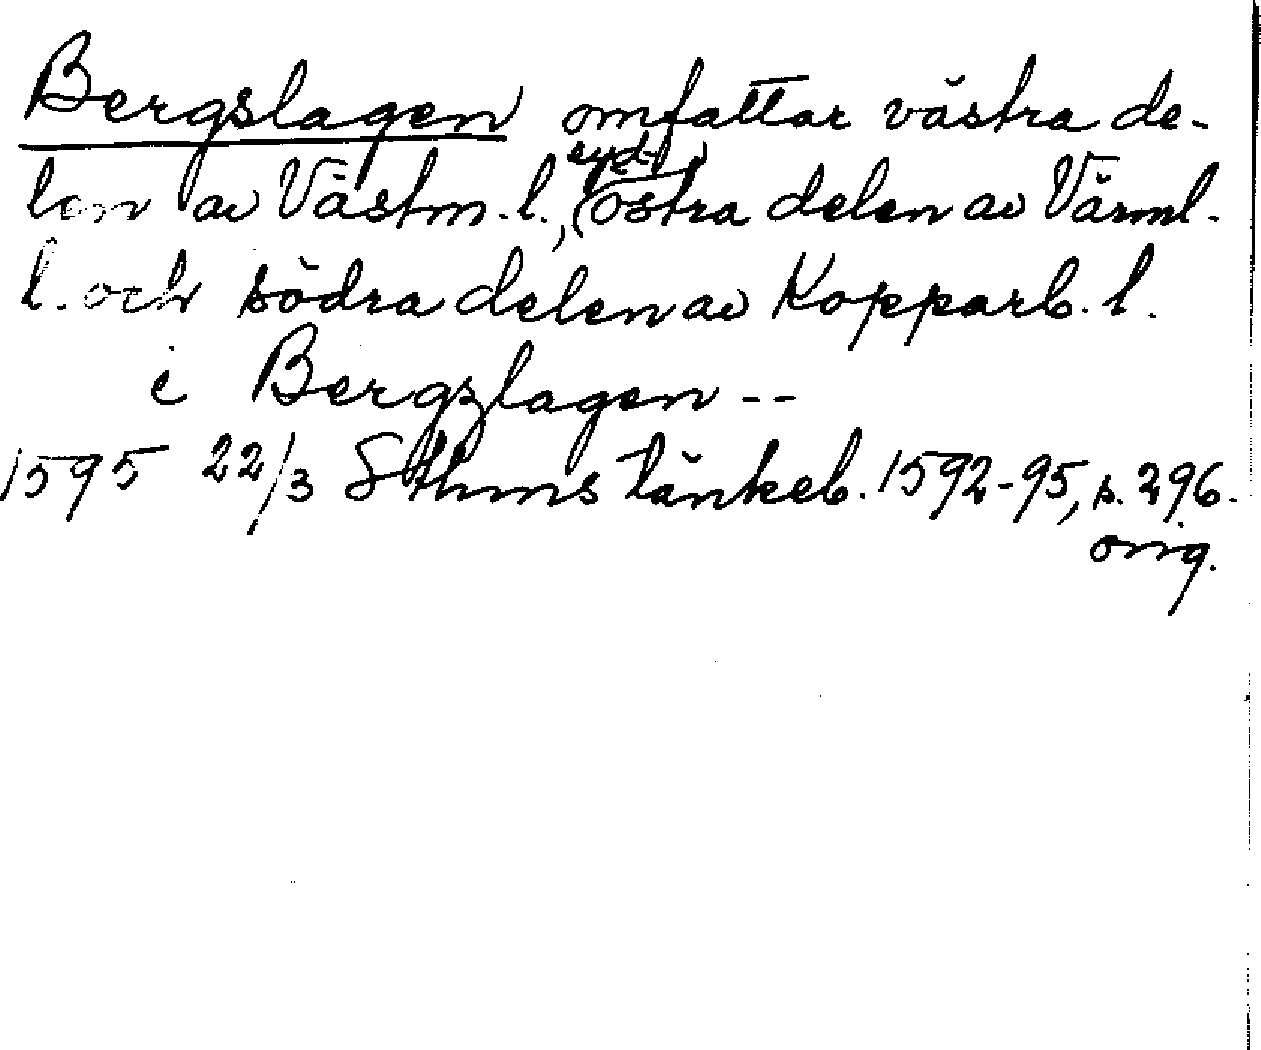 Bergslagen omfattar västra de-
len av Västm. l., (syd-)östra delen av Värml.
l. och södra delen av Kopparb. l.
i Bergzlagen --
1595 22/3 Sthms tänkeb. 1592-95, s. 296.
orig.